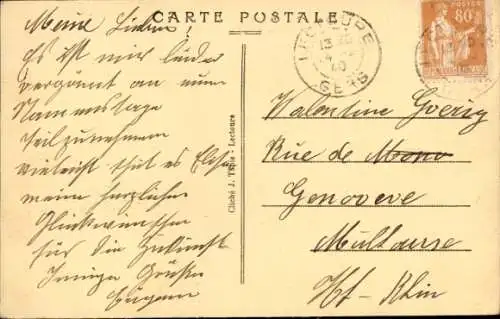 CARTE POSTALE
Meine Lieben!
Es ist mir leider
vergönnt an eurem
Namenstage
teilzunehmen
vielleicht thut es Elise
meine herzlichen
Glückwünsche
für die Zukunft
Innige Grüße
Eugen
Cliché J. Tapie - Lectoure
LECTOURE
GERS
POSTES
80c
Valentine Goerig
Rue de Mono
Genoveve
Mulhouse
Ht-Rhin